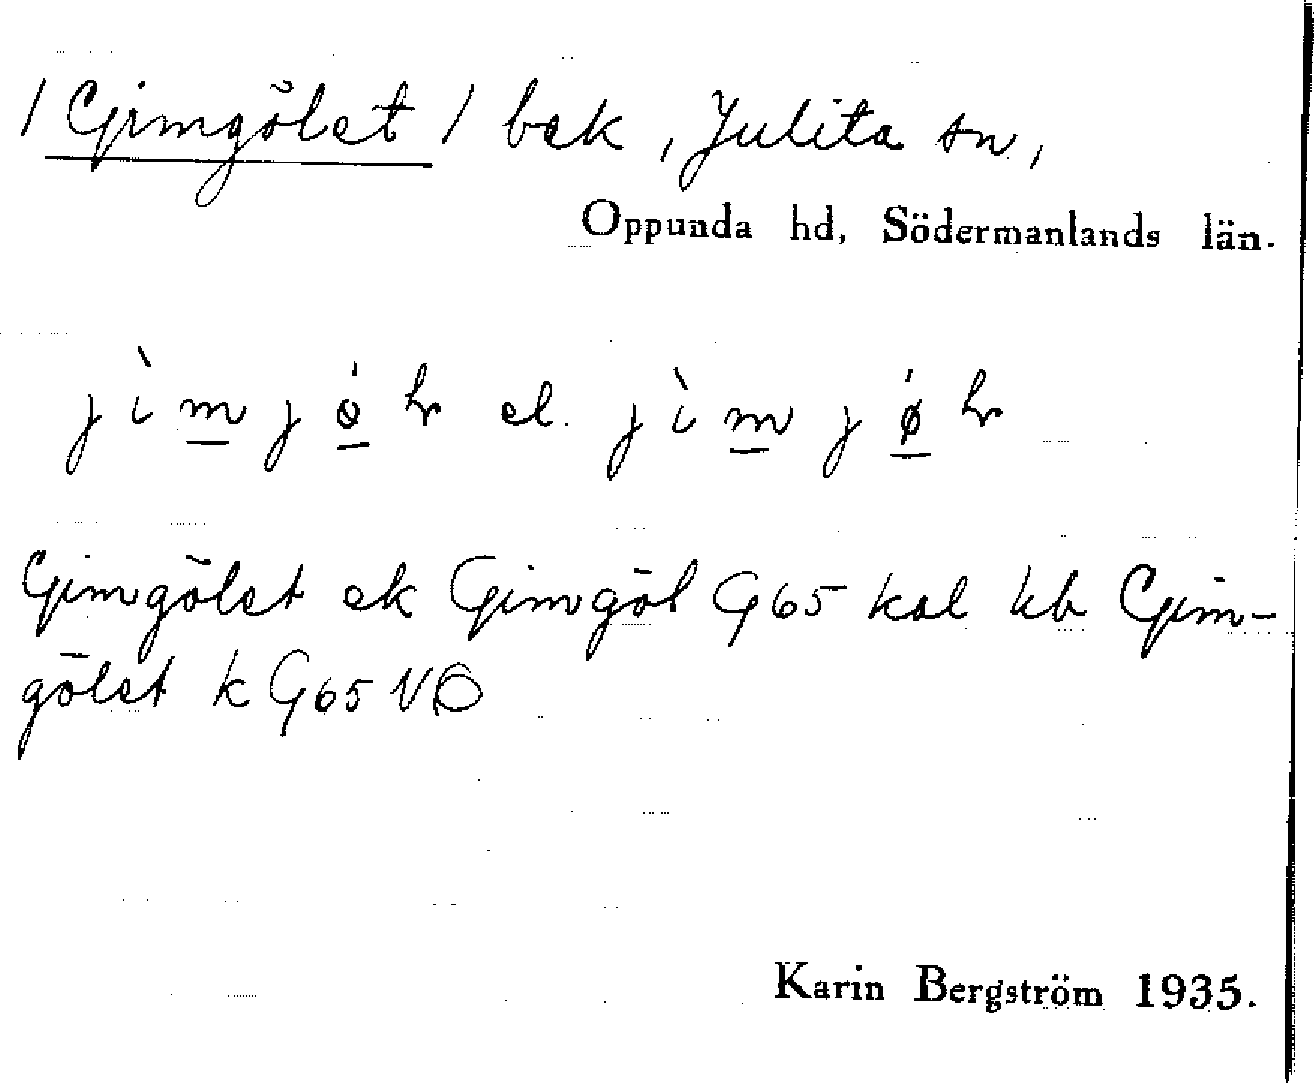 / Gimgölet / bek, Julita sn,
Oppunda hd, Södermanlands län.
j ì m j ǿ hr el. j ì m j ǿ hr
Gimgölet ek Gimgöl G65 kal kb Gim-
gölet k G65 VÖ
Karin Bergström 1935.